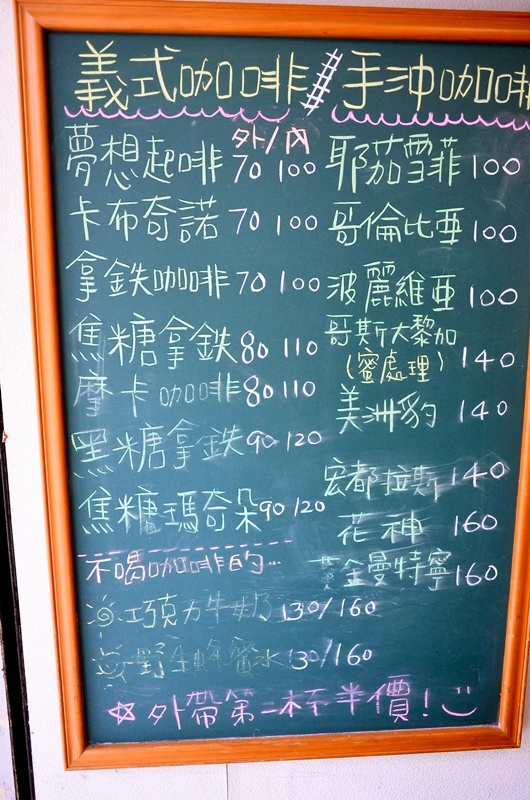 義式咖啡 / 手沖咖啡
外/內
夢想起啡 70 100
卡布奇諾 70 100
拿鉄咖啡 70 100
焦糖拿鉄 80 110
摩卡咖啡 80 110
黑糖拿鉄 90 120
焦糖瑪奇朵 90 120
不喝咖啡的...
巧克力牛奶 130/160
野生蜂蜜水 130/160
耶茄雪菲 100
哥倫比亜 100
波麗維亜 100
哥斯大黎加
(蜜處理) 140
美洲豹 140
宏都拉斯 140
花神 160
黃金曼特寧 160
☆外帶第二杯半價!